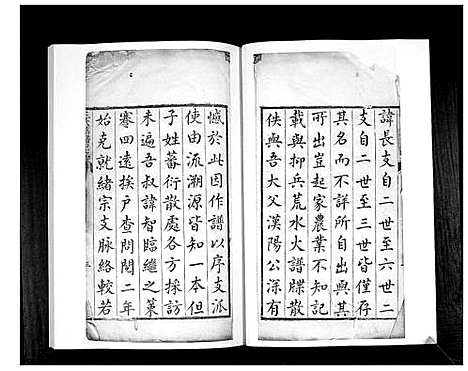 諱長支自二世至六世二
支自二世至三世皆僅存
其名而不詳所自出與其
所出豈起家農業不可無
載與抑兵荒水火譜牒散
佚與吾大父漢陽公深有
憾於此因作譜以序支派
使由流溯源皆知一本但
子姓蕃衍散處各方採訪
未遍吾叔諱智臨繼之策
蹇四遠挨戶查問閱二年
始克就緒宗支脉絡較若